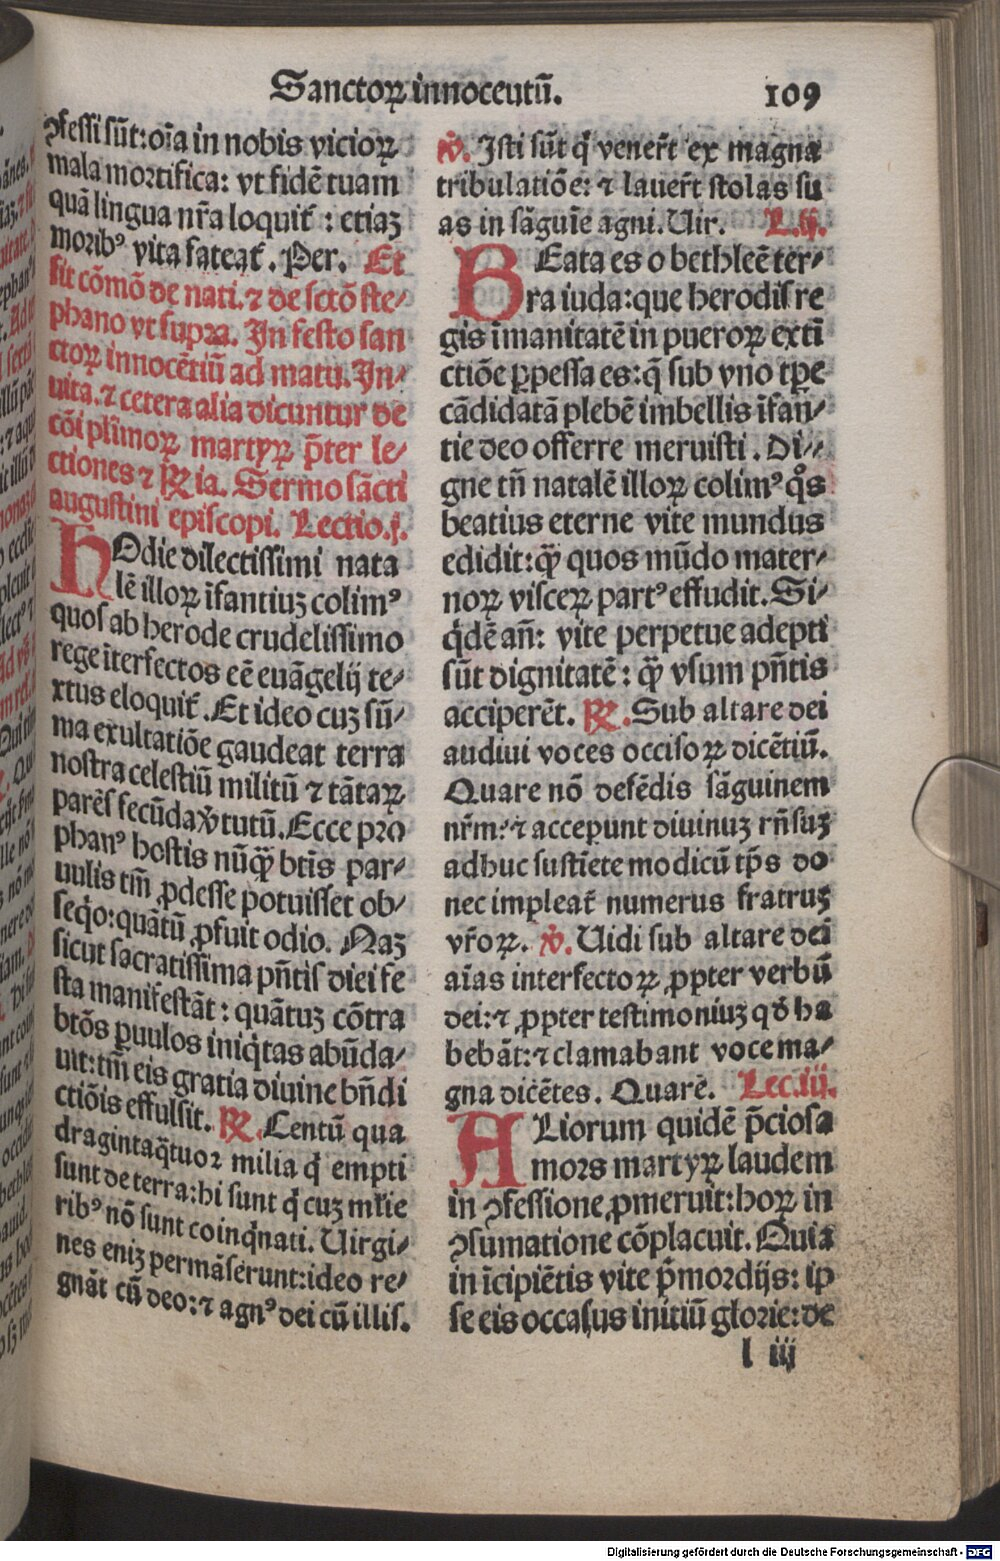 Sanctoꝝ innocentū.
109
ꝯfessi sūt: oīa in nobis vicioꝝ
mala mortifica: vt fidē tuam
quā lingua nr̄a loquit᷑ : etiaꝫ
moribꝰ vita fateat᷑. Per. Et
sit cōmō de nati. ⁊ de sctō ste⸗
phano vt supra. In festo san
ctoꝝ innocētiū ad matu. In⸗
uita. ⁊ cetera alia dicuntur de
cōi plīmoꝝ martyꝝ p̄ter le⸗
ctiones ⁊ ꝶ ia. Sermo sācti
augustini episcopi. Lectio .j.
HOdie dilectissimi nata
lē illoꝝ īfantiuꝫ colimꝰ
quos ab herode crudelissimo
rege īterfectos eē euāgelij te⸗
xtus eloquit᷑. Et ideo cuꝫ sū⸗
ma exultatiōe gaudeat terra
nostra celestiū militū ⁊ tātaꝝ
parēs fecūda v̓tutū. Ecce pro
phanꝰ hostis nūqꝫ̄ btīs par⸗
uulis tm̄ ꝓdesse potuisset ob⸗
seq̄o: quātū ꝓfuit odio. Naꝫ
sicut sacratissima pn̄tis diei fe
sta manifestāt : quātuꝫ cōtra
btōs ꝑuulos iniq̇tas abūda⸗
uit: tm̄ eis gratia diuine bn̄di
ctiōis effulsit. ꝶ. Centū qua
dragintaq̄tuor milia q̇ empti
sunt de terra: hi sunt q̇ cuꝫ ml̓ie
ribꝰ nō sunt coinq̇nati. Uirgi⸗
nes eniꝫ permāserunt: ideo re⸗
gnāt cū deo: ⁊ agnꝰ dei cū illis.
℣. Isti sūt q̇ vener̄t ex magna
tribulatiōe: ⁊ lauer̄t stolas su
as in sāguīe agni. Uir. L.ij.
BEata es o bethleē ter⸗
ra iuda: que herodis re
gis īmanitatē in pueroꝝ extī
ctiōe ꝑpessa es: q̄ sub vno tꝑe
cādidatā plebē imbellis īfan⸗
tie deo offerre meruisti. Di⸗
gne tn̄ natalē illoꝝ colimꝰ q̊s
beatius eterne vite mundus
edidit: qꝫ̄ quos mūdo mater⸗
noꝝ visceꝝ partꝰ effudit. Si⸗
q̇dē an̄: vite perpetue adepti
sūt dignitatē: qꝫ̄ vsum pn̄tis
acciperēt. ꝶ. Sub altare dei
audiui voces occisoꝝ dicētiū.
Quare nō defēdis sāguinem
nr̄m: ⁊ acceperunt diuinuꝫ rn̄suꝫ
adhuc sustīete modicū tp̄s do
nec impleat᷑ numerus fratruꝫ
vr̄oꝝ. ℣. Uidi sub altare dei
aīas interfectoꝝ ꝓpter verbū
dei: ⁊ ꝓpter testimoniuꝫ qđ ha
bebāt: ⁊ clamabant voce ma⸗
gna dicētes. Quarē. Lec.iij.
ALiorum quidē p̄ciosa
mors martyꝝ laudem
in ꝯfessione ꝓmeruit: hoꝝ in
ꝯsumatione cōplacuit. Quia
in īcipiētis vite p̄mordijs: ip
se eis occasus initiū glorie: de
l iij
Digitalisierung gefördert durch die Deutsche Forschungsgemeinschaft - DFG